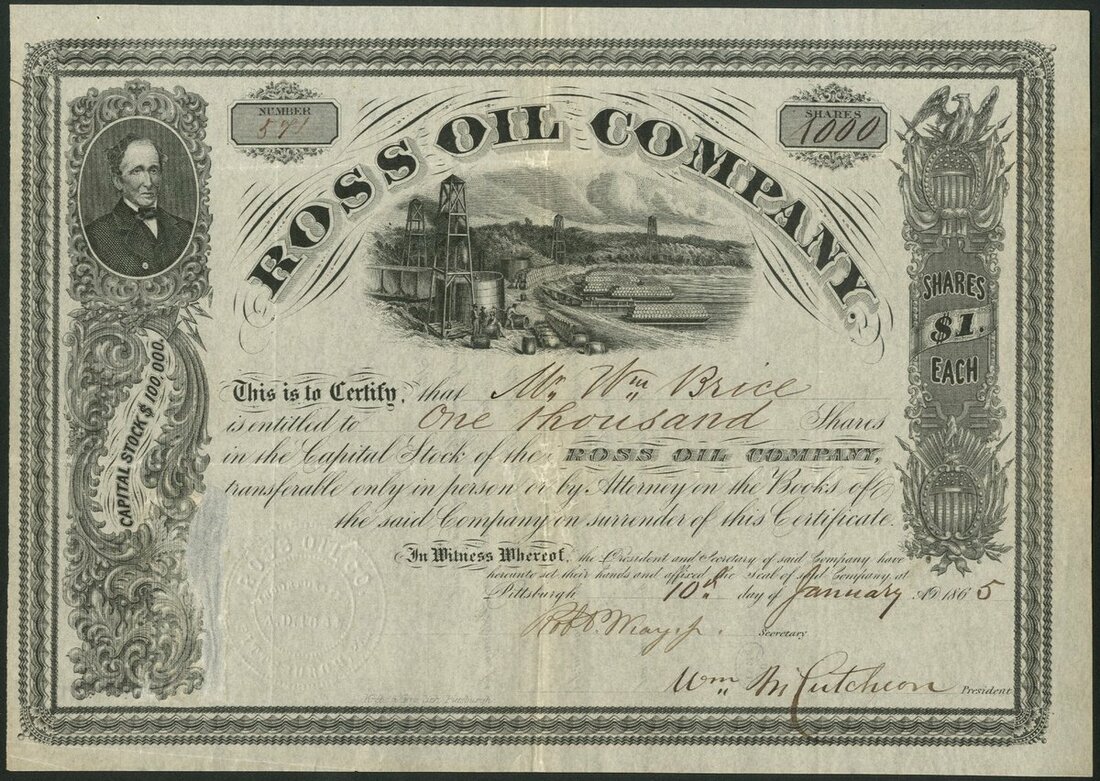 NUMBER
SHARES
1000
ROSS OIL COMPANY.
CAPITAL STOCK $100,000.
SHARES
$1.
EACH
This is to Certify, that Mr. Wm. Brice
is entitled to One thousand Shares
in the Capital Stock of the ROSS OIL COMPANY,
transferable only in person or by Attorney on the Books of
the said Company on surrender of this Certificate.
In Witness Whereof, the President and Secretary of said Company have
hereunto set their hands and affixed the Seal of said Company at
Pittsburgh 10th day of January AD. 1865
Secretary
Wm. McCutcheon President
ROSS OIL CO.
A.D.
Pittsburgh